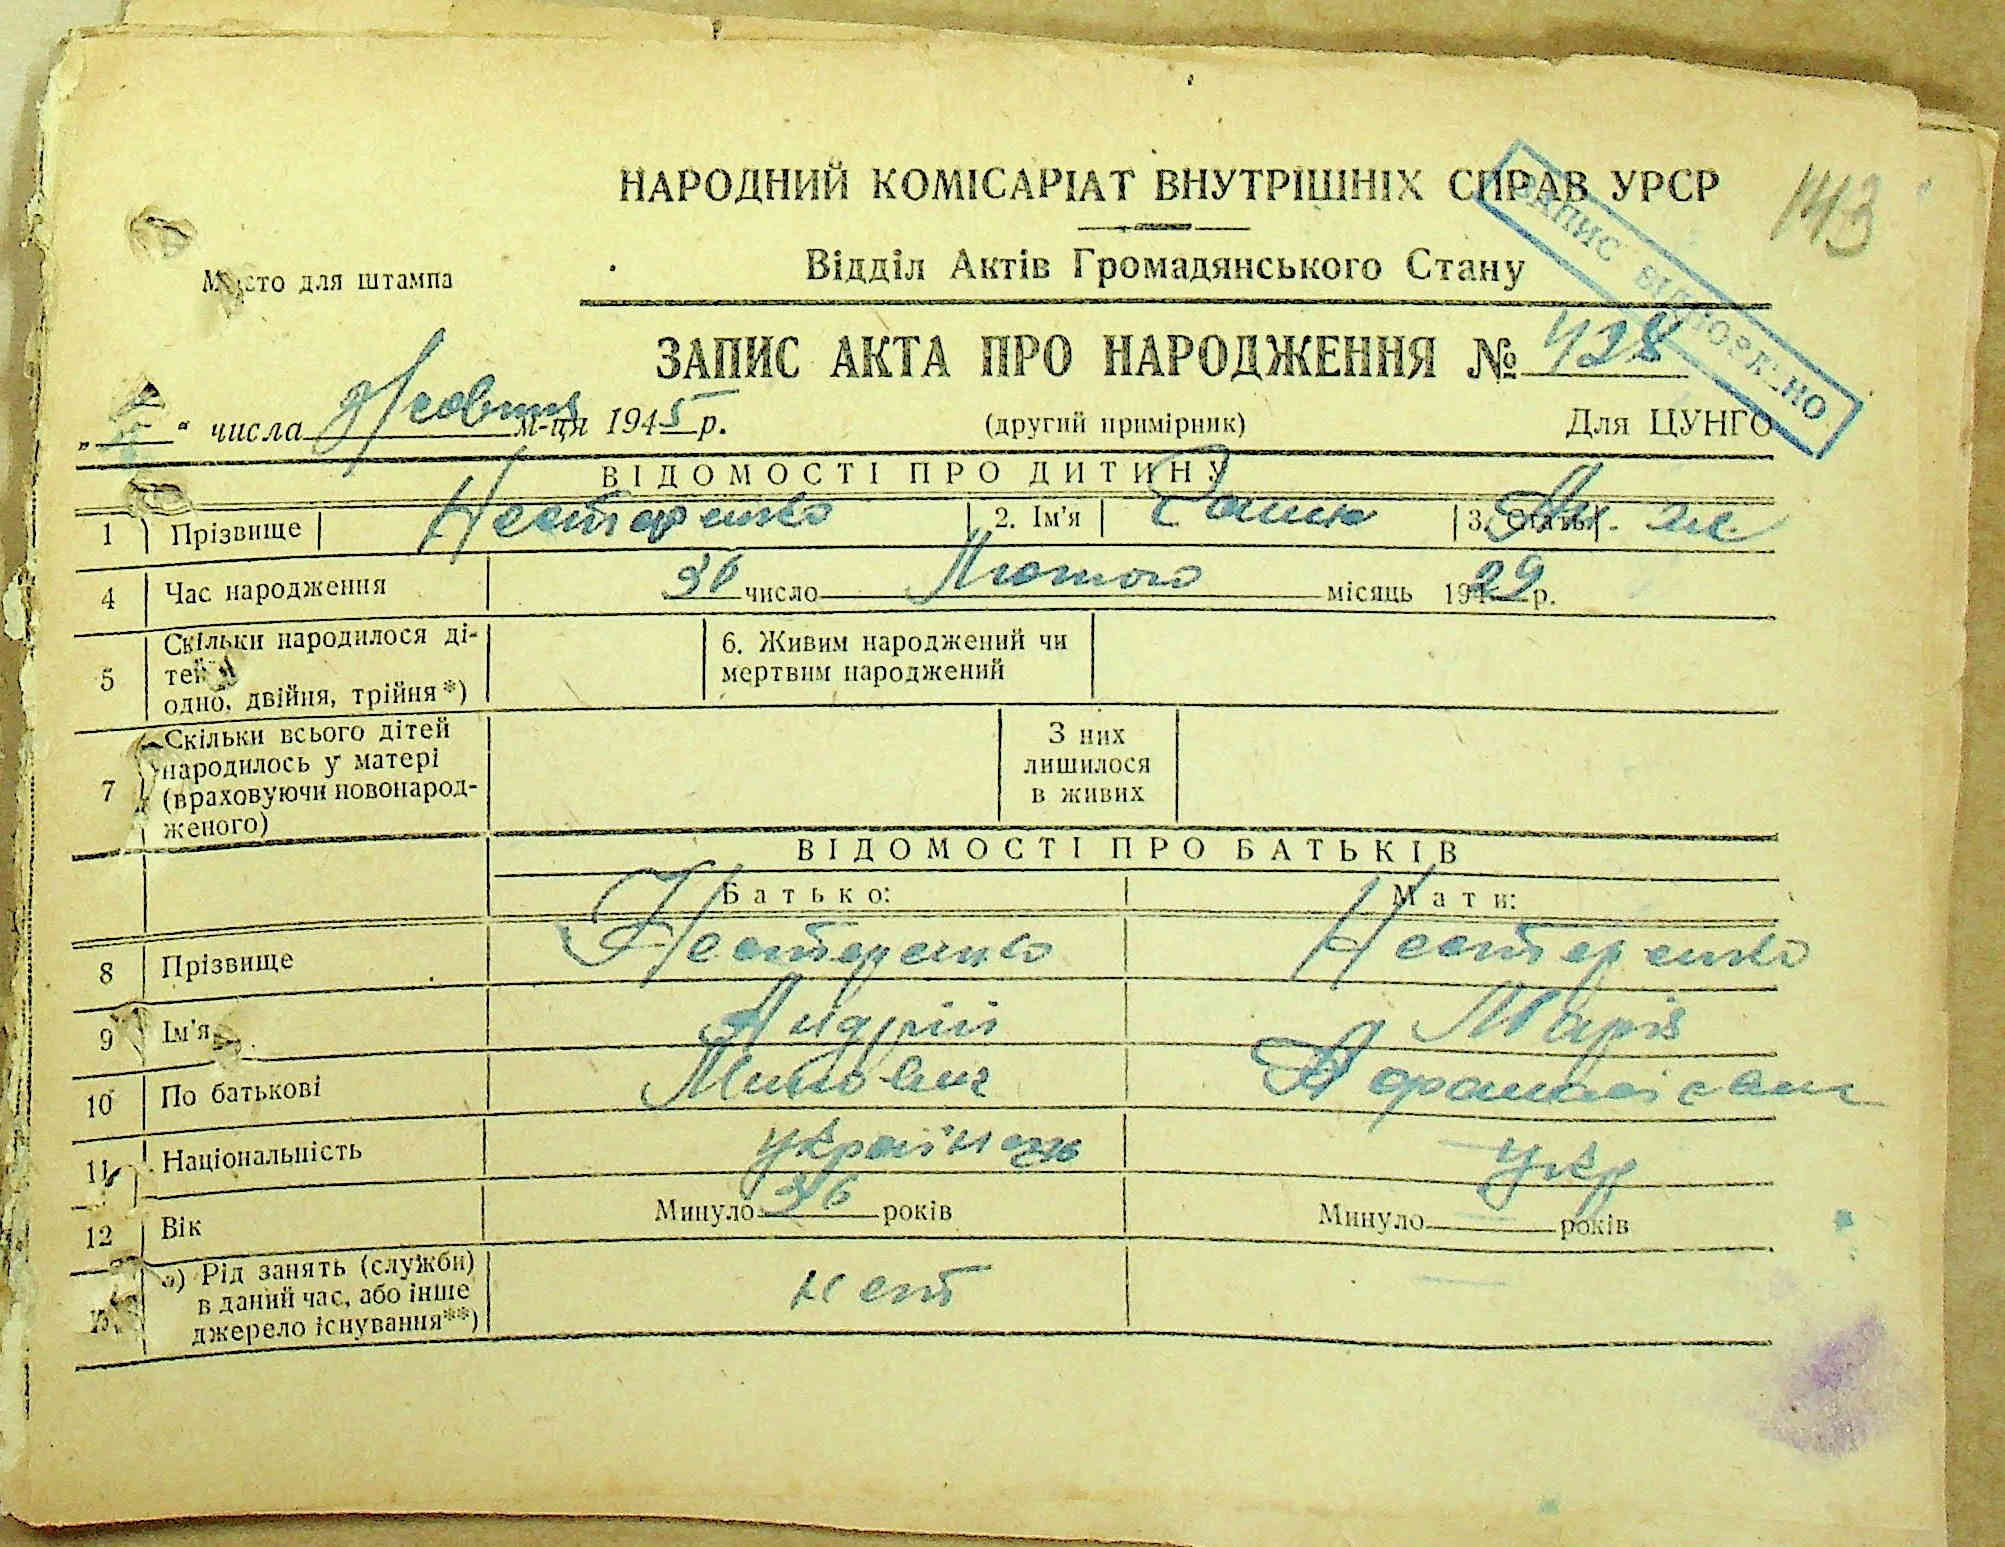 НАРОДНИЙ КОМІСАРІАТ ВНУТРІШНІХ СПРАВ УРСР
143
ЗАПИС ВІДНОВЛЕНО
Місто для штампа
Відділ Актів Громадянського Стану
ЗАПИС АКТА ПРО НАРОДЖЕННЯ № 428
„ “ числа Жовтня м-ця 1945 р. (другий примірник) Для ЦУНГО
ВІДОМОСТІ ПРО ДИТИНУ
1 Прізвище Нестеренко 2. Ім'я 3. Стать ж
4 Час народження число Лютого місяць 1929 р.
5 Скільки народилося ді-
тей
одно, двійня, трійня*)
6. Живим народжений чи
мертвим народжений
7 Скільки всього дітей
народилось у матері
(враховуючи новонарод-
женого)
З них
лишилося
в живих
ВІДОМОСТІ ПРО БАТЬКІВ
Батько: Мати:
8 Прізвище Нестеренко Нестеренко
9 Ім'я Андрій Марія
10 По батькові
11 Національність українець Укр
12 Вік Минуло 36 років Минуло — років
13 а) Рід занять (служби)
в даний час, або інше
джерело існування**)
нет —